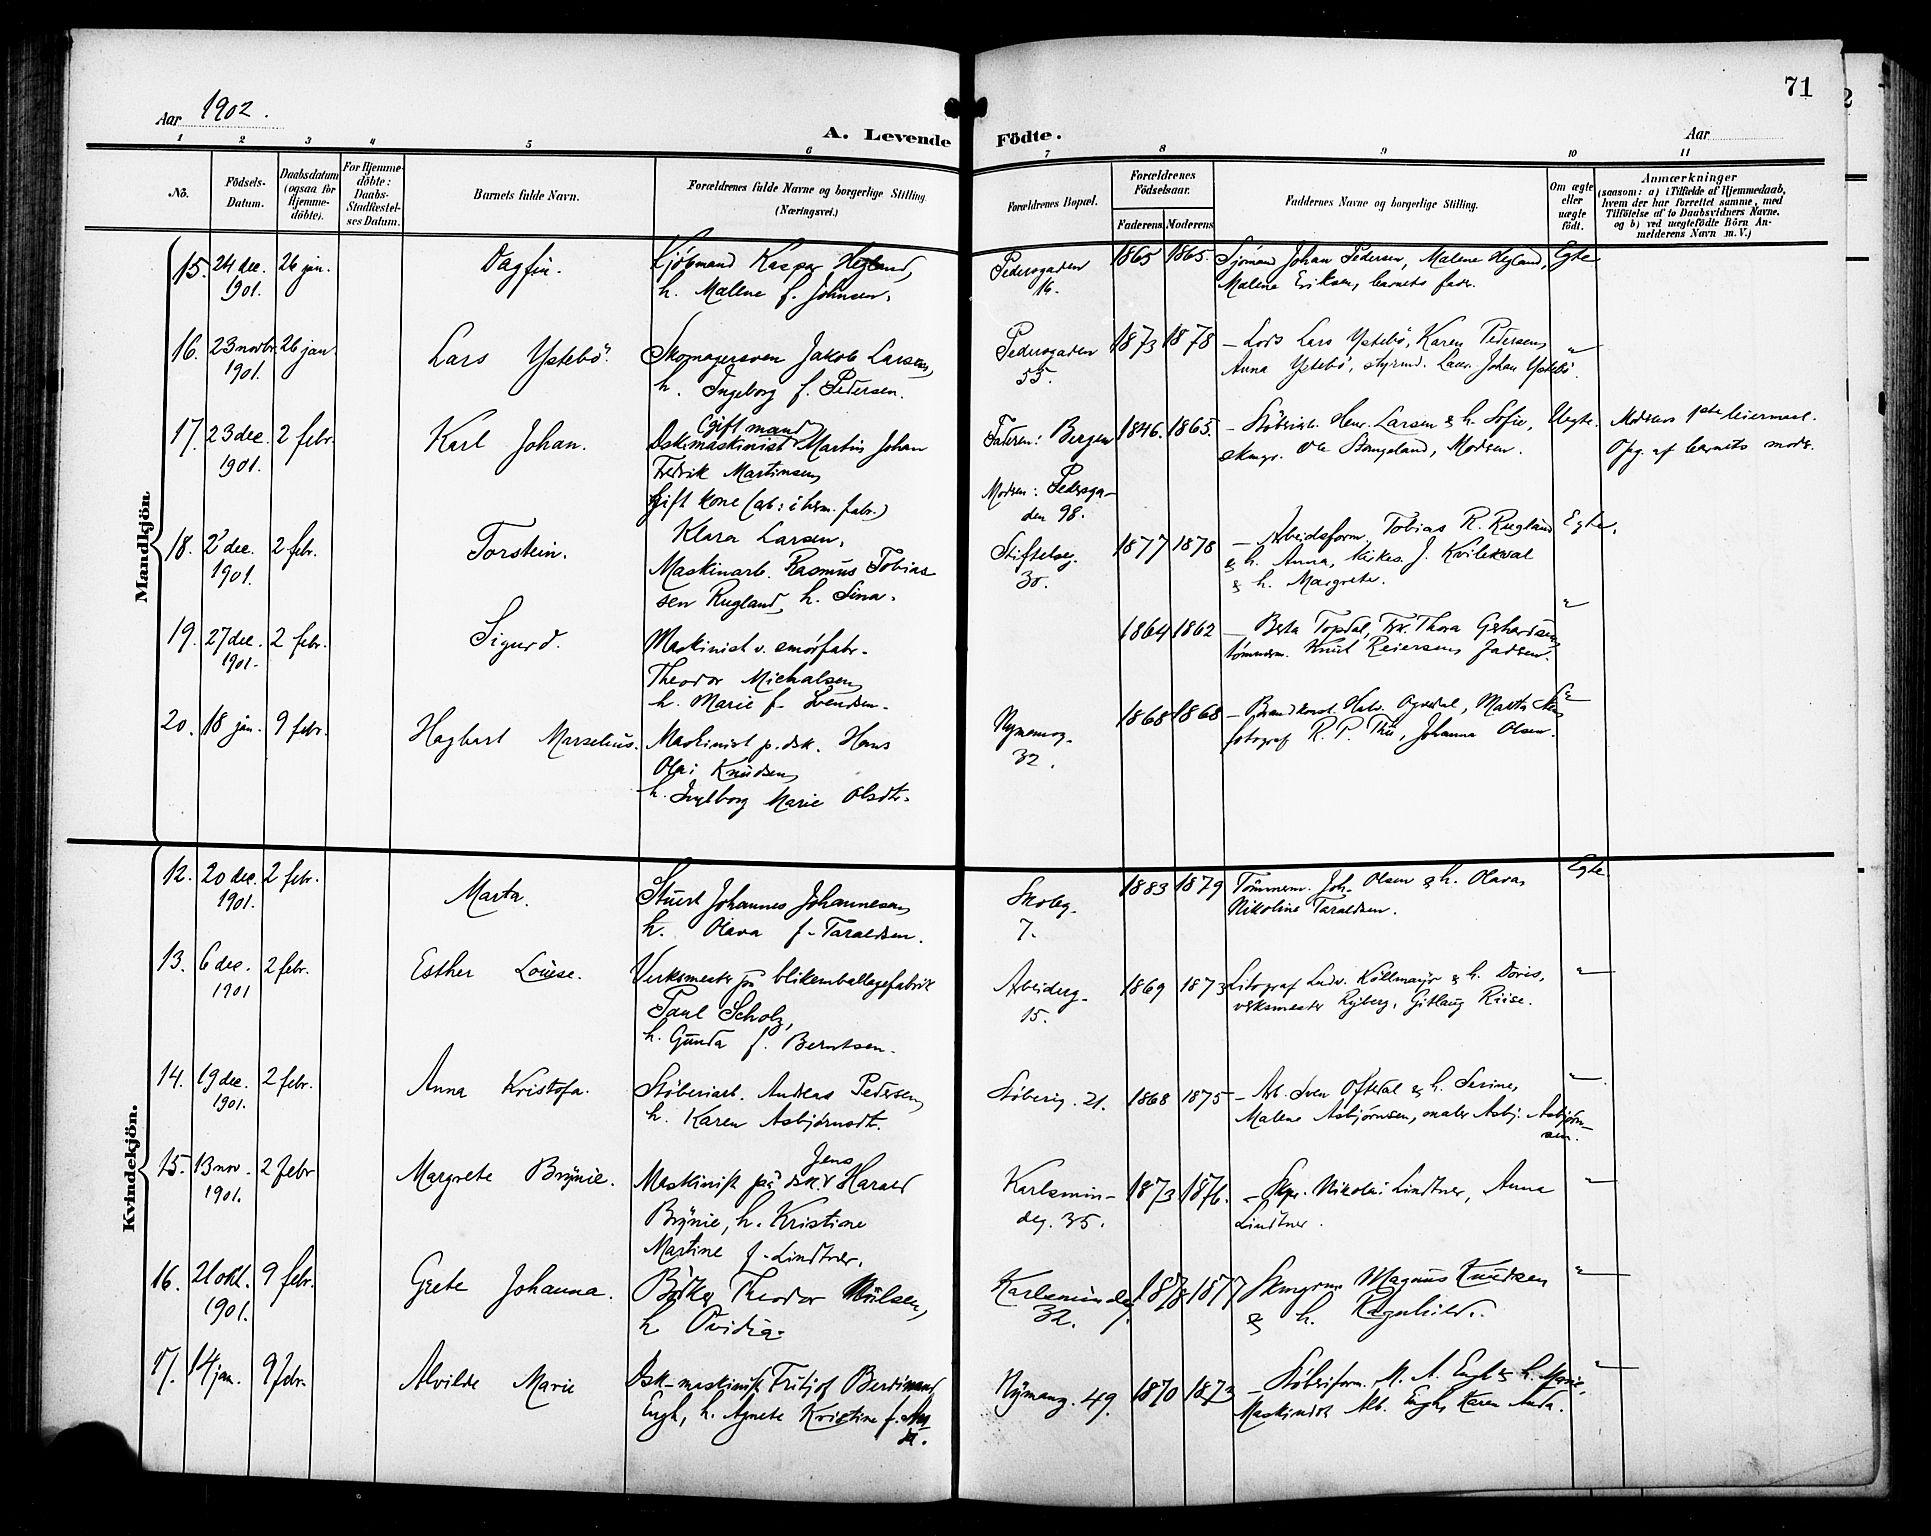 Aar 1902.
A. Levende Födte.
Aar
71
1 2 3 4 5 6 7 8 9 10 11
No.
Födsels-Datum.
Daabsdatum (ogsaa for Hjemme-döbte).
For Hjemme-döbte: Daabs-Stadfæstel-ses Datum.
Barnets fulde Navn.
Forældrenes fulde Navne og borgerlige Stilling (Næringsvei.)
Forældrenes Bopæl.
Forældrenes Födselsaar.
Faderens Moderens
Faddernes Navne og borgerlige Stilling.
Om ægte eller uægte födt.
Anmærkninger
(saasom: a) i Tilfælde af Hjemmedaab,
hvem der har forrettet samme, med
Tilföielse af to Daabsvidners Navne,
og b) ved uægtefödte Börn An-
melderens Navn m. V.)
Mandkjön
15. 24 dec. 26 jan. Dagfin. Kjöbmand Kaspar Hegland, Pedersgaden 1865 1865. Sjömand Johan Pedersen, Malene Hegland, Egte
1901. h. Malene f. Johnsen. 16. Malene Eriksen, barnets fader.
16. 23 novbr. 26 jan. Lars Ystebö. Skomagersven Jakob Larsen, Pedersgaden 1873 1878 – Lods Lars Ystebö, Karen Pedersen, "
1901. h. Ingeborg f. Pedersen. 55. Anna Ystebö, styrmd. Laur. Johan Ystebö.
17. 23 dec. 2 febr. Karl Johan. (gift mand) Dskmaskinist Martin Johan Faderen: Bergen 1846. 1865. – Stöberiarb. Henr. Larsen & h. Sofie, Uegte. Moderens 1ste leiermaal.
1901. Fredrik Martinsen, Ole Stangeland, Moderen. Opg. af barnets moder.
Gift kone (arb: i herm. fabr.) Moderen: Pedersga-
Klara Larsen. den 98.
18. 2 dec. 2 febr. Torstein. Maskinarb. Rasmus Tobias- Stiftelseg. 1877 1878 – Arbeidsform. Tobias R. Rugland Egte.
1901. sen Rugland, h. Sina. 30. & h. Anna, J. Kvilekval
& h. Margrete.
19. 27 dec. 2 febr. Sigurd. Maskinist v. smörfabr. 1864 1862 – Berta Topdal, Frk. Thora Gerhardsen, "
1901. Theodor Michalsen, tömmerm. Knut Reiersen,
h. Marie f. Svendsen.
20. 18 jan. 9 febr. Hagbart Marselius. Maskinist p. dsk. Hans Nymansg. 1868 1868 – Brandkonst. Halv. Ognedal, Marta "
Olai Knudsen, 32. fotograf R. P. Thu, Johanna Olsen.
h. Ingeborg Marie Olsdtr.
Kvindekjön.
12. 20 dec. 2 febr. Marta. Stuert Johannes Johannesen, Skoleg. 1883 1879 Tömmerm. Joh. Olsen & h. Olava, Egte
1901. h. Olava f. Taraldsen. 7. Nikoline Taraldsen.
13. 6 dec. 2 febr. Esther Louise. Verksmester på blikemballagefabrik Arbeiderg. 1869 1873 Litograf Ludv. Köllmayr & h. Doris, "
1901 Paul Scholz, 15. verksmester Ryberg, Gitlaug Riise.
h. Gunda f. Berntsen.
14. 19 dec. 2 febr. Anna Kristofa. Stöberiarb. Andreas Pedersen, Stöberig. 21. 1868 1875 – Arb. Sven Oftedal & h. Serine, "
1901. h. Karen Asbjörnsdt. Malene Asbjörnsen, maler Asbj. Asbjörn-
sen.
15. 13 nov. 2 febr Margrete Brynie. Maskinist på dsk. Jens Harald Karlsmin- 1873 1876. – Skpr. Nikolai Lindtner, Anna "
1901. Brynie, h. Kristine deg. 35. Lindtner.
Martine f. Lindtner.
16. 21 okt. 9 febr. Grete Johanna. Bödker Theodor Nielsen, Karlsmindeg. 1878 1877 Magnus Knudsen "
1901. h. Ovidia. 32. & h. Ragnhild.
17. 14 jan. 9 febr. Alvilde Marie Dsk-maskinist Fritjof Berdinand Nymansg. 49. 1870 1873 – Stöberiform. M. A. Engh & h. Marie, "
Engh, h. Agnete Kristine f. Maskinist Alb. Engh, Karen Anda.